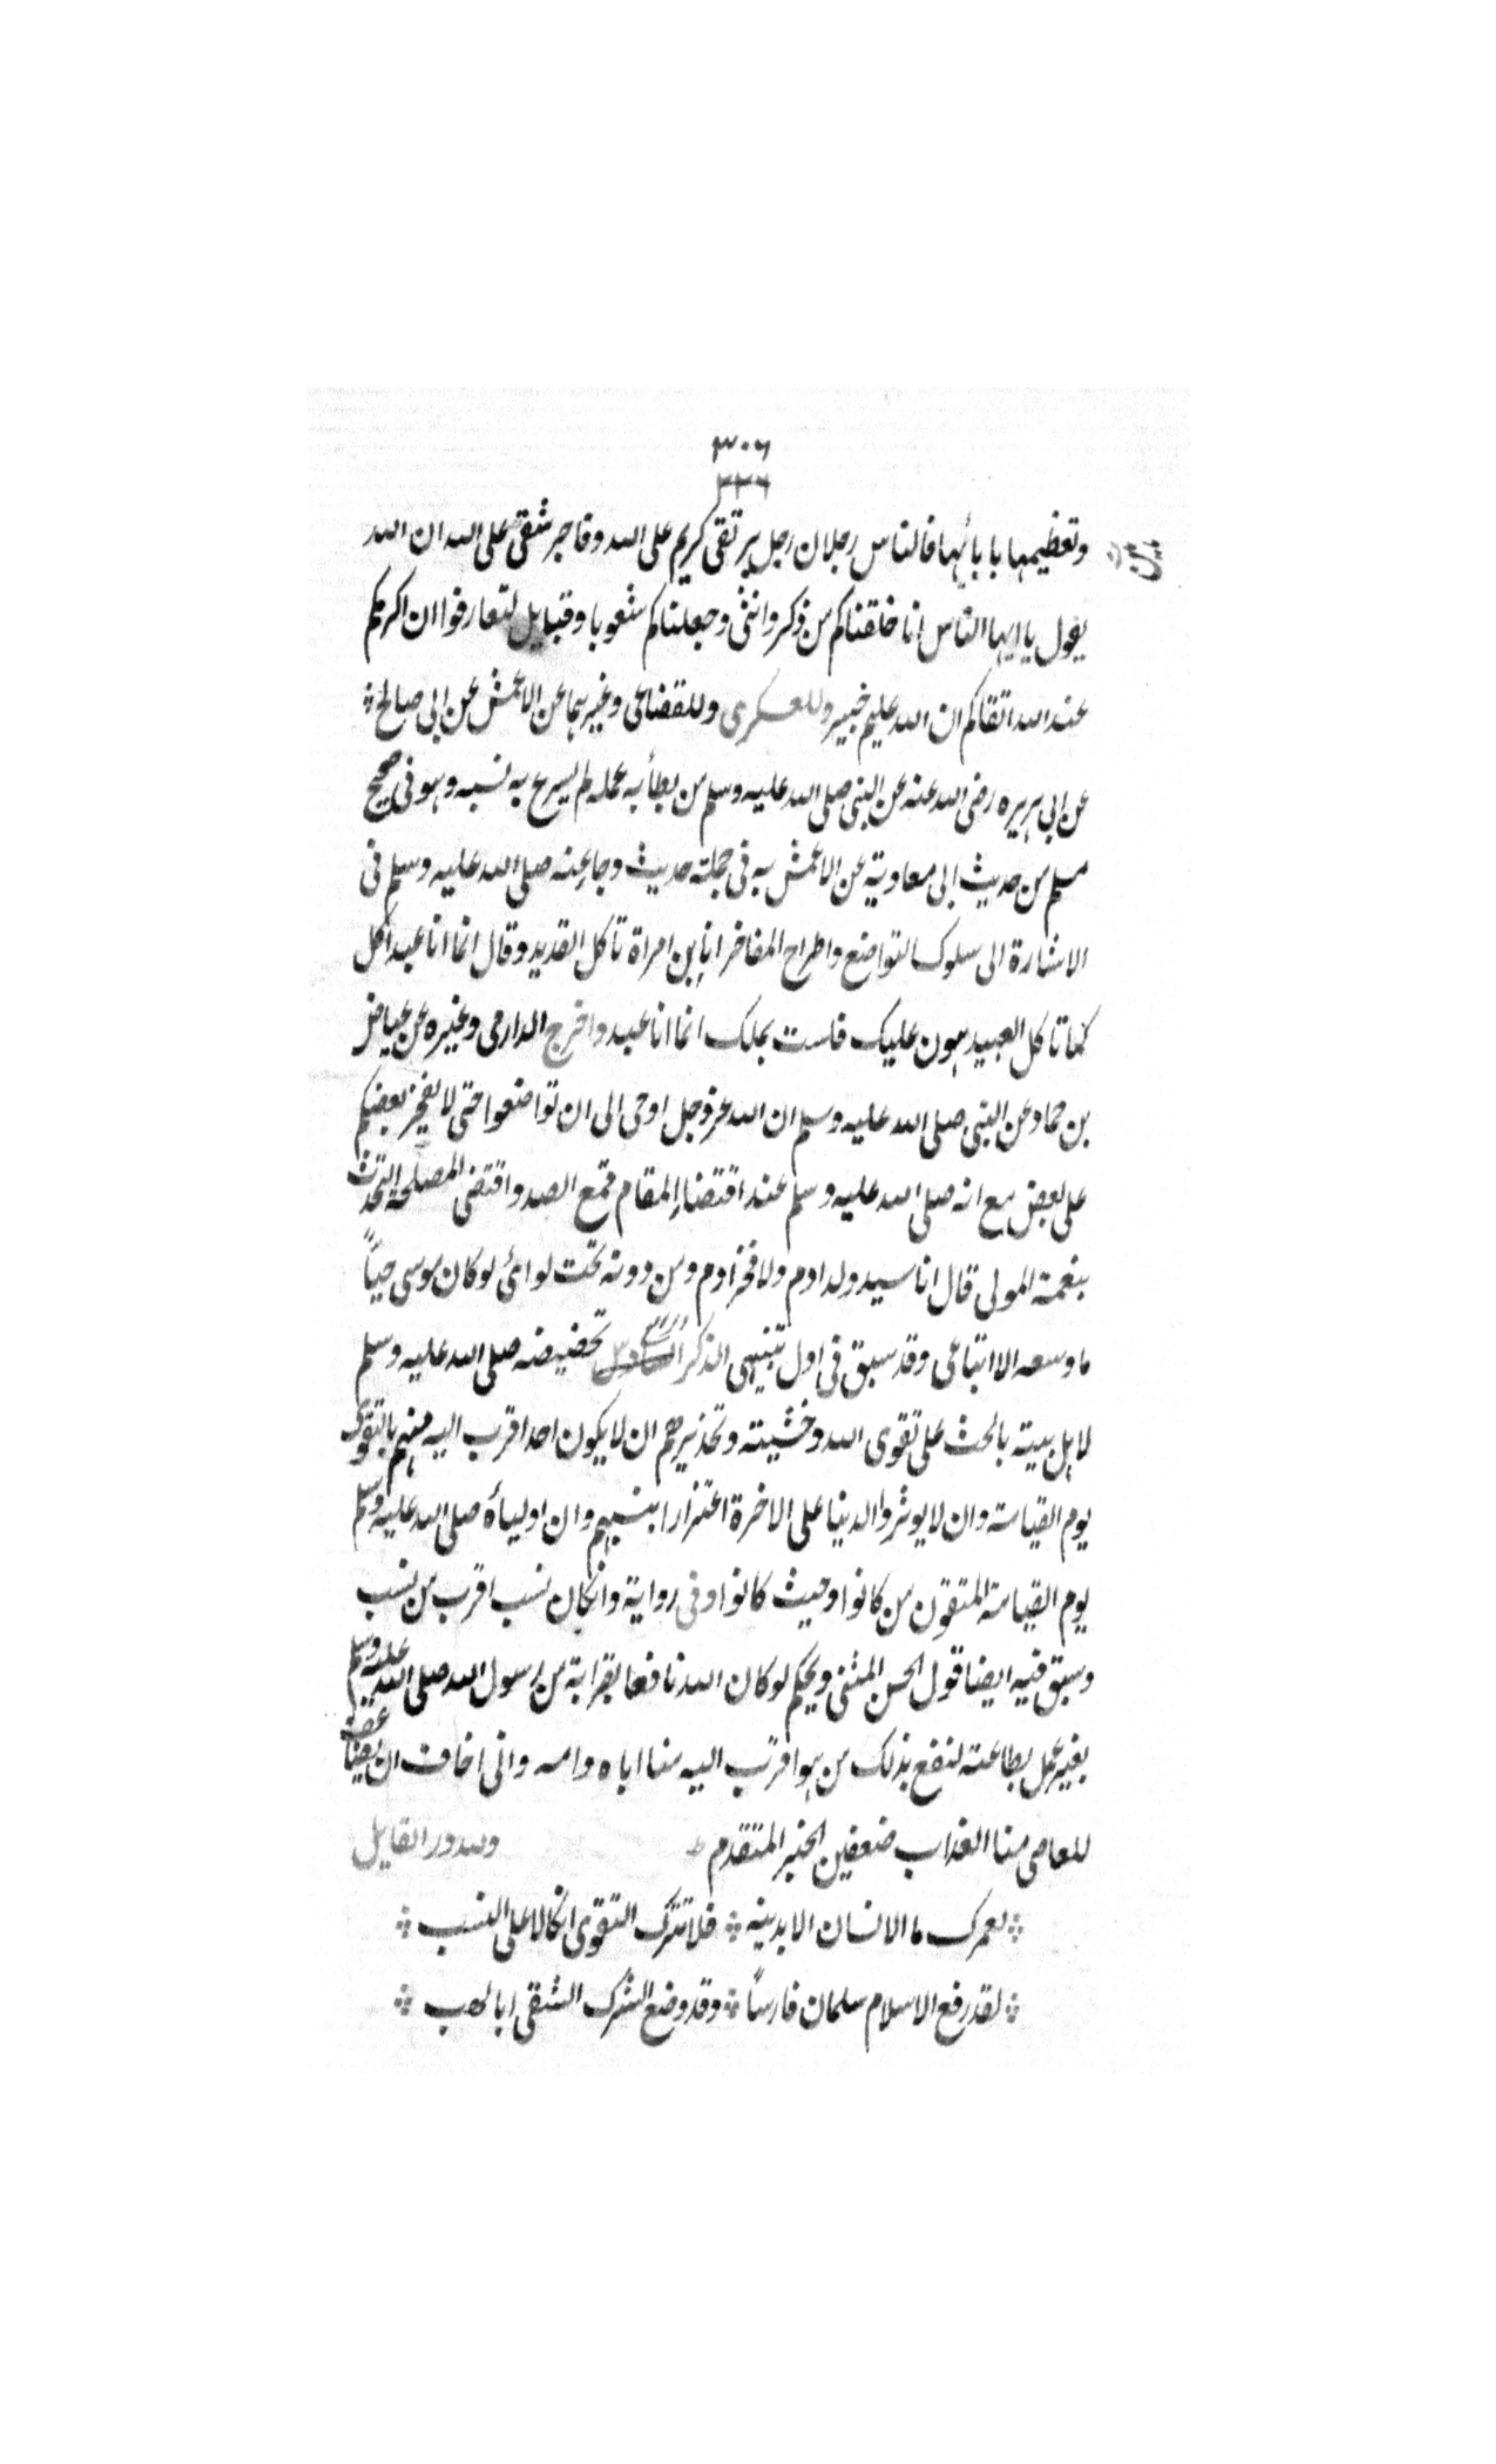 ٣٠٦
٣٣٦
وتعظيمها بابائها فالناس رجلان رجل بر تقى كريم على الله وفاجر شقى على الله ان الله
يقول يا ايها الناس انا خلقناكم من ذكر وانثى وجعلناكم شعوبا وقبايل لتعارفوا ان اكرمكم
عند الله اتقاكم ان الله عليم خبير وللعسكرى وللقضاعى وغيرهما عن الاعمش عن ابى صالح
عن ابى هريره رضى الله عنه عن النبى صلى الله عليه وسلم من بطأ به عمله لم يسرع به نسبه وهو فى صحيح
مسلم من حديث ابى معاوية عن الاعمش به فى جملة حديث وجا عنه صلى الله عليه وسلم فى
الاشارة الى سلوك التواضع واطراح المفاخر انا ابن امراة تاكل القديد وقال انما انا عبد اكل
كما تاكل العبيد هون عليك فلست بملك انما انا عبد واخرج الدارمى وغيره عن عياض
بن حماد عن النبى صلى الله عليه وسلم ان الله عز وجل اوحى الى ان تواضعوا حتى لا يفخر بعضكم
على بعض مع انه صلى الله عليه وسلم عند اقتضاء المقام قمع الصد واقتضى المصلحة التحدث
بنعمة المولى قال انا سيد ولد ادم ولا فخر ادم ومن دونه تحت لوائى لو كان موسى حيًا
ما وسعه الا اتباعى وقد سبق فى اول تنبيهى الذكر الرابع تخضيضه صلى الله عليه وسلم
لاهل بيته بالحث على تقوى الله وخشيته وتحذيرهم ان لا يكون احد اقرب اليه منهم بالتقوى
يوم القيامة وان لا يوثروا الدنيا على الاخرة اغترارا بنسبهم وان اولياءه صلى الله عليه وسلم
يوم القيامة المتقون من كانوا وحيث كانوا وفى رواية وان كان نسب اقرب من نسب
وسبق فيه ايضا قول الحسن المثنى ويحكم لو كان الله نافعا بقرابة من رسول الله صلى الله عليه وسلم
بغير عمل بطاعته لنفع بذلك من هو اقرب اليه منا اباه وامه وانى اخاف ان يضاعف
للعاصى منا العذاب ضعفين الخبر المتقدم ولله در القايل
لعمرك ما الانسان الا بدينه فلا تترك التقوى اتكالا على النسب
لقد رفع الاسلام سلمان فارسًا وقد وضع الشرك الشقى ابا لهب